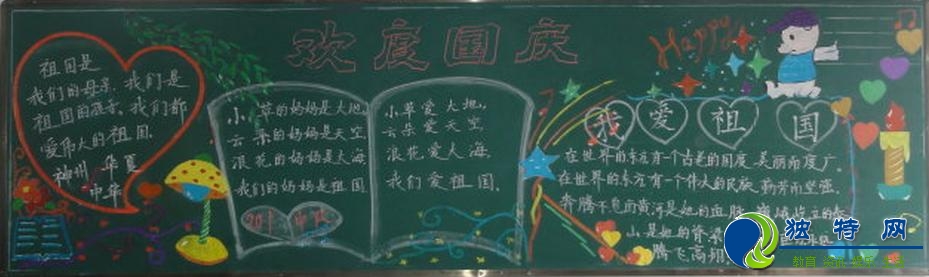 欢度国庆
Happy
祖国是
我们的母亲,我们是
祖国的孩子,我们都
爱伟大的祖国.
神州 华夏
中华
小草的妈妈是大地,
云朵的妈妈是天空,
浪花的妈妈是大海,
我们的妈妈是祖国.
小草爱大地,
云朵爱天空,
浪花爱大海,
我们爱祖国.
我爱祖国
在世界的东方有一个古老的国度 美丽而宽广
在世界的东方有一个伟大的民族 勤劳而坚强
奔腾不息的黄河是她的血脉
山是她的脊梁
腾飞高翔
独特网